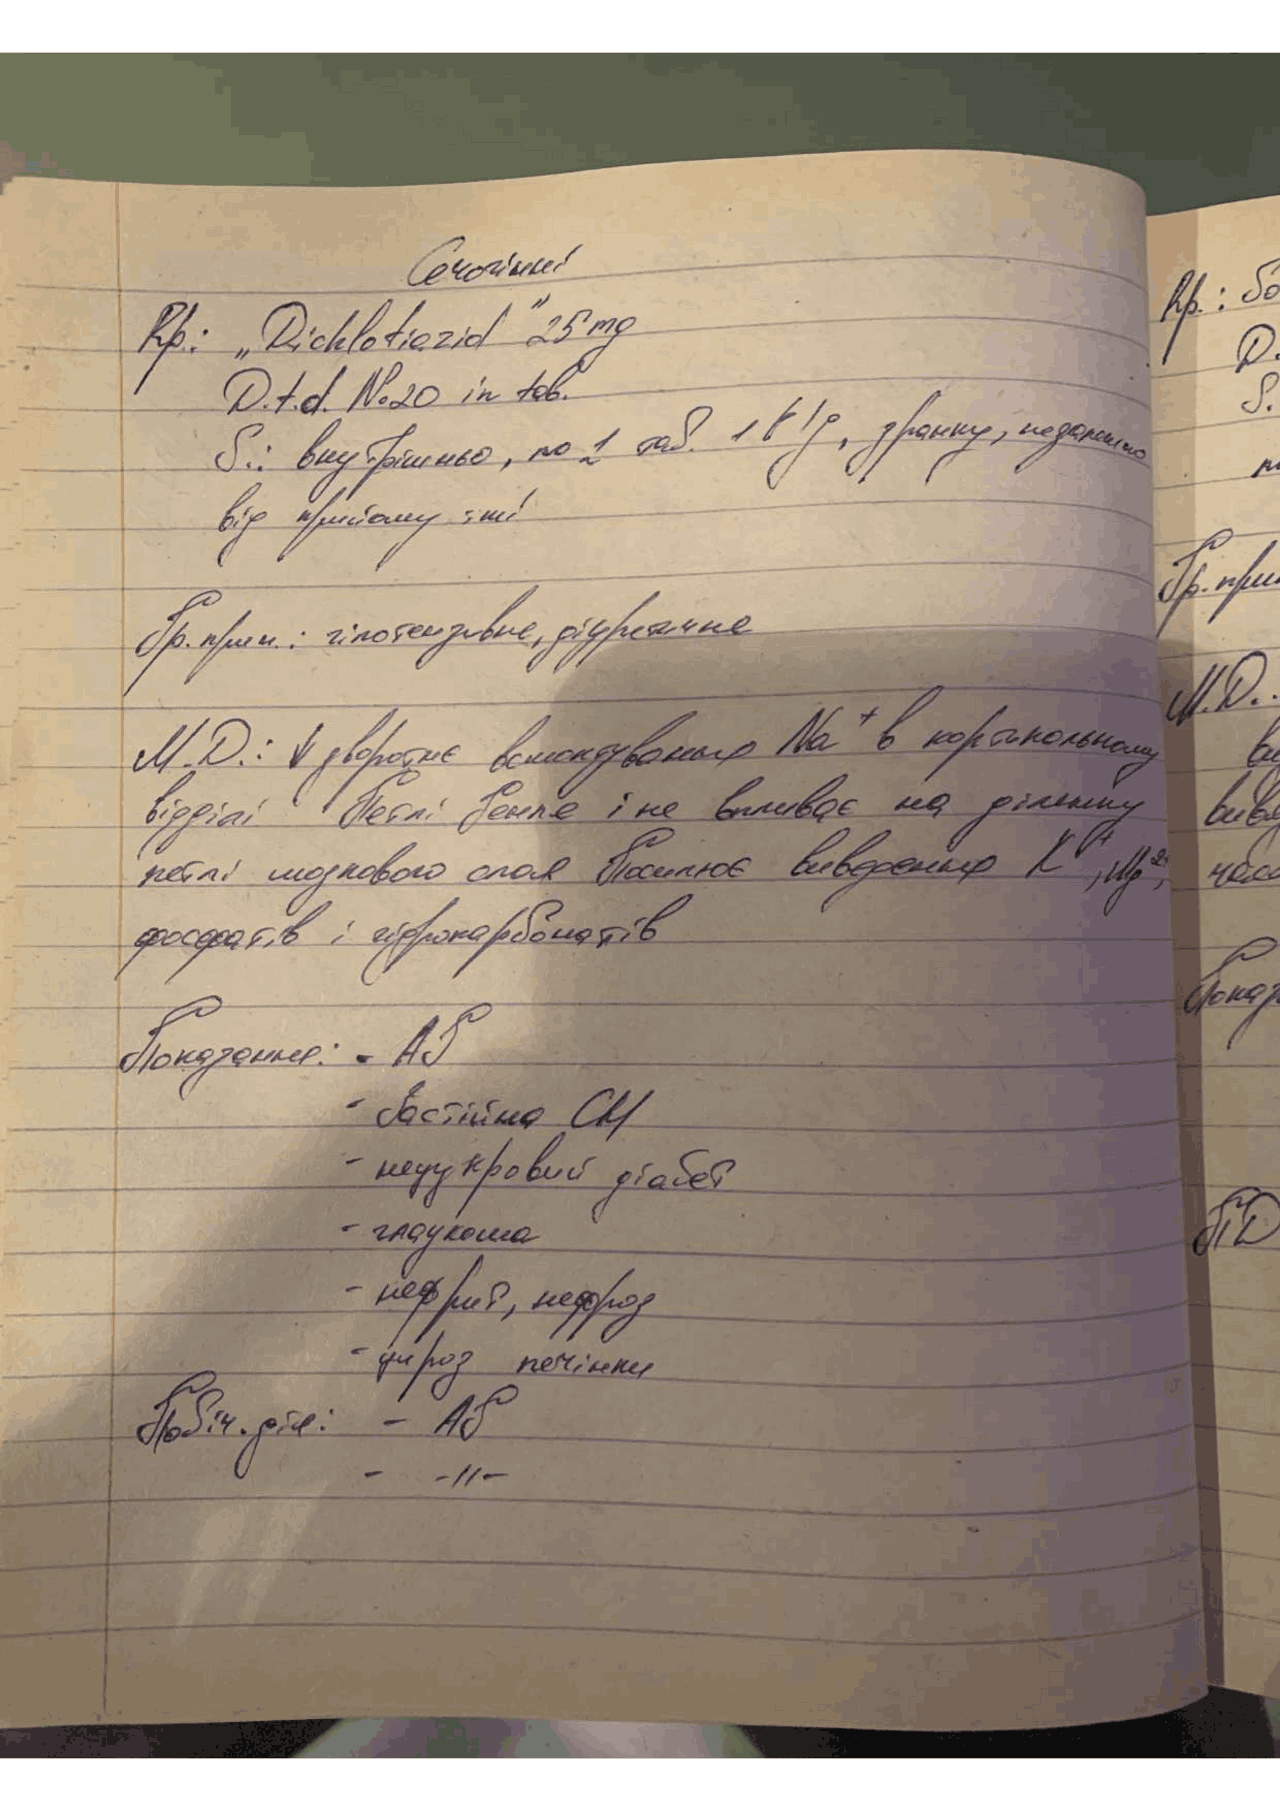 Сечогінні
Rp.: „Dichlotiazid" 25 mg
D.t.d. №20 in tab.
S.: внутрішньо, по 1 таб. 1 р/д, зранку, незалежно
від прийому їжі
Гр. прин.: гіпотензивне, діуретичне
М.Д.: ↓ зворотнє всмоктування Na⁺ в кортикольному
відділі Петлі Генле і не впливає на ділянку
петлі мозкового слоя Посилює виведення K⁺, Mg²⁺,
фосфатів і гідрокарбонатів
Показання: - АГ
- Застійна СН
- нецукровий діабет
- глаукома
- нефрит, нефроз
- цироз печінки
Побіч. дія: - АГ
- -||-
Rp.:
D.
S.
Гр. прин
М.Д.:
ПД